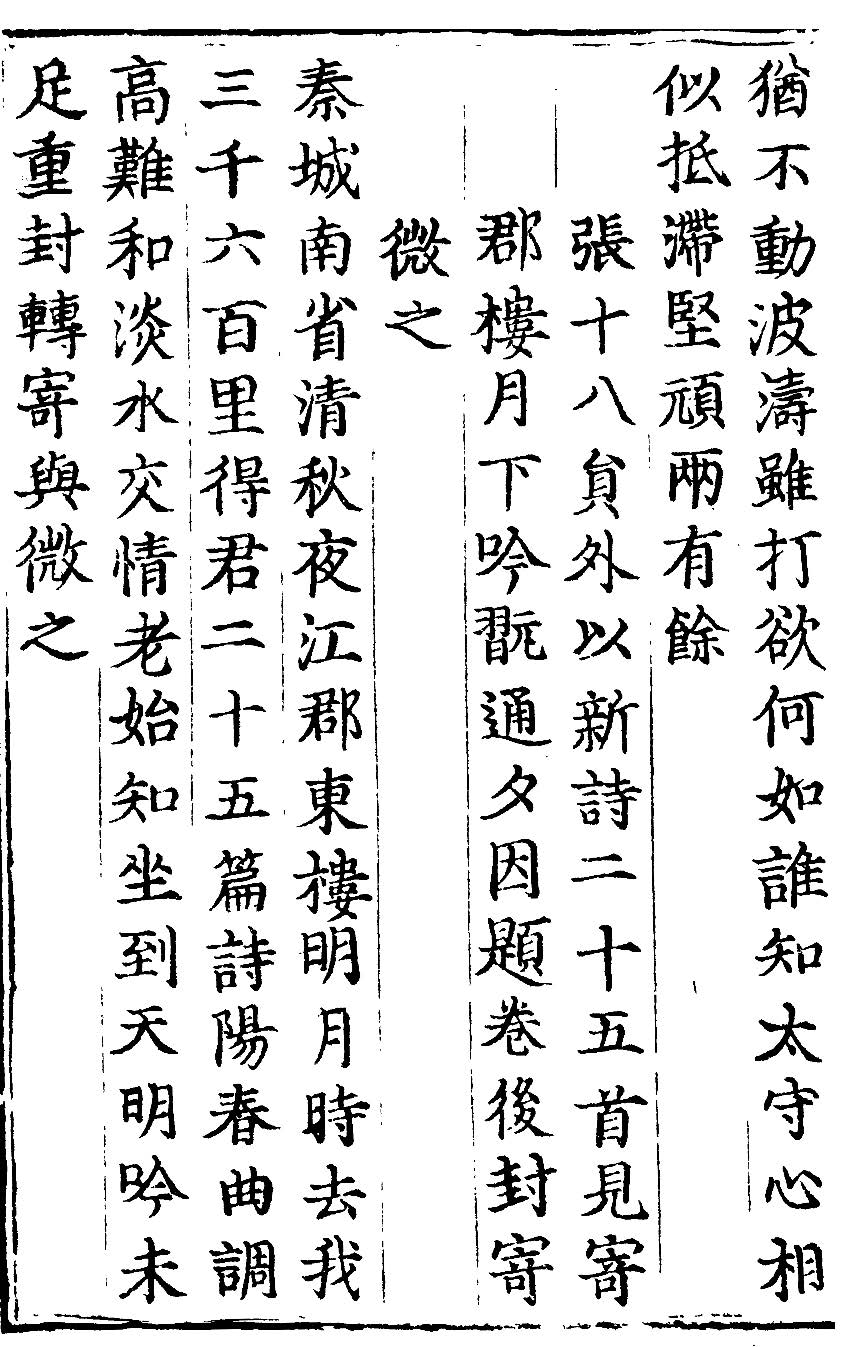 猶不動波濤雖打欲何如誰知太守心相
似抵滯堅頑兩有餘
張十八貟外以新詩二十五首見寄
郡樓月下吟翫通夕因題卷後封寄
微之
秦城南省清秋夜江郡東樓明月時去我
三千六百里得君二十五篇詩陽春曲調
高難和淡水交情老始知坐到天明吟未
足重封轉寄與微之